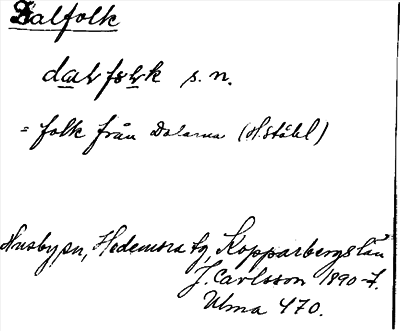 Dalfolk
dalfolk s. n.
= folk från Dalarna (H. Ståhl)
Husby sn, Hedemora tg, Kopparbergs län
J. Carlsson 1890-t.
Ulma 470.